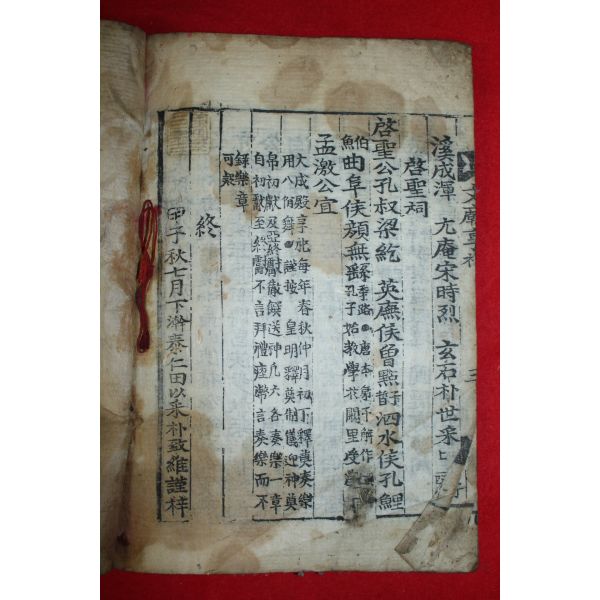 溪成渾 尤庵宋時烈 玄石朴世采
啓聖祠
啓聖公孔叔梁紇 英廡侯曾點 泗水侯孔鯉
伯魚 曲阜侯顔無繇 季路 孔子始教學於闕里受
孟激公宜
大成殿享祀每年春秋仲月初丁釋奠奏樂
用八佾舞 謹按 皇明釋奠制儀迎神奠
帛初獻及亞終獻徹饌送神凡六各奏樂一章
自初獻至終獻不言拜禮 幣言奏樂而不
錄樂章
可
終
甲子秋七月下澣泰仁田以采朴致維謹梓
三